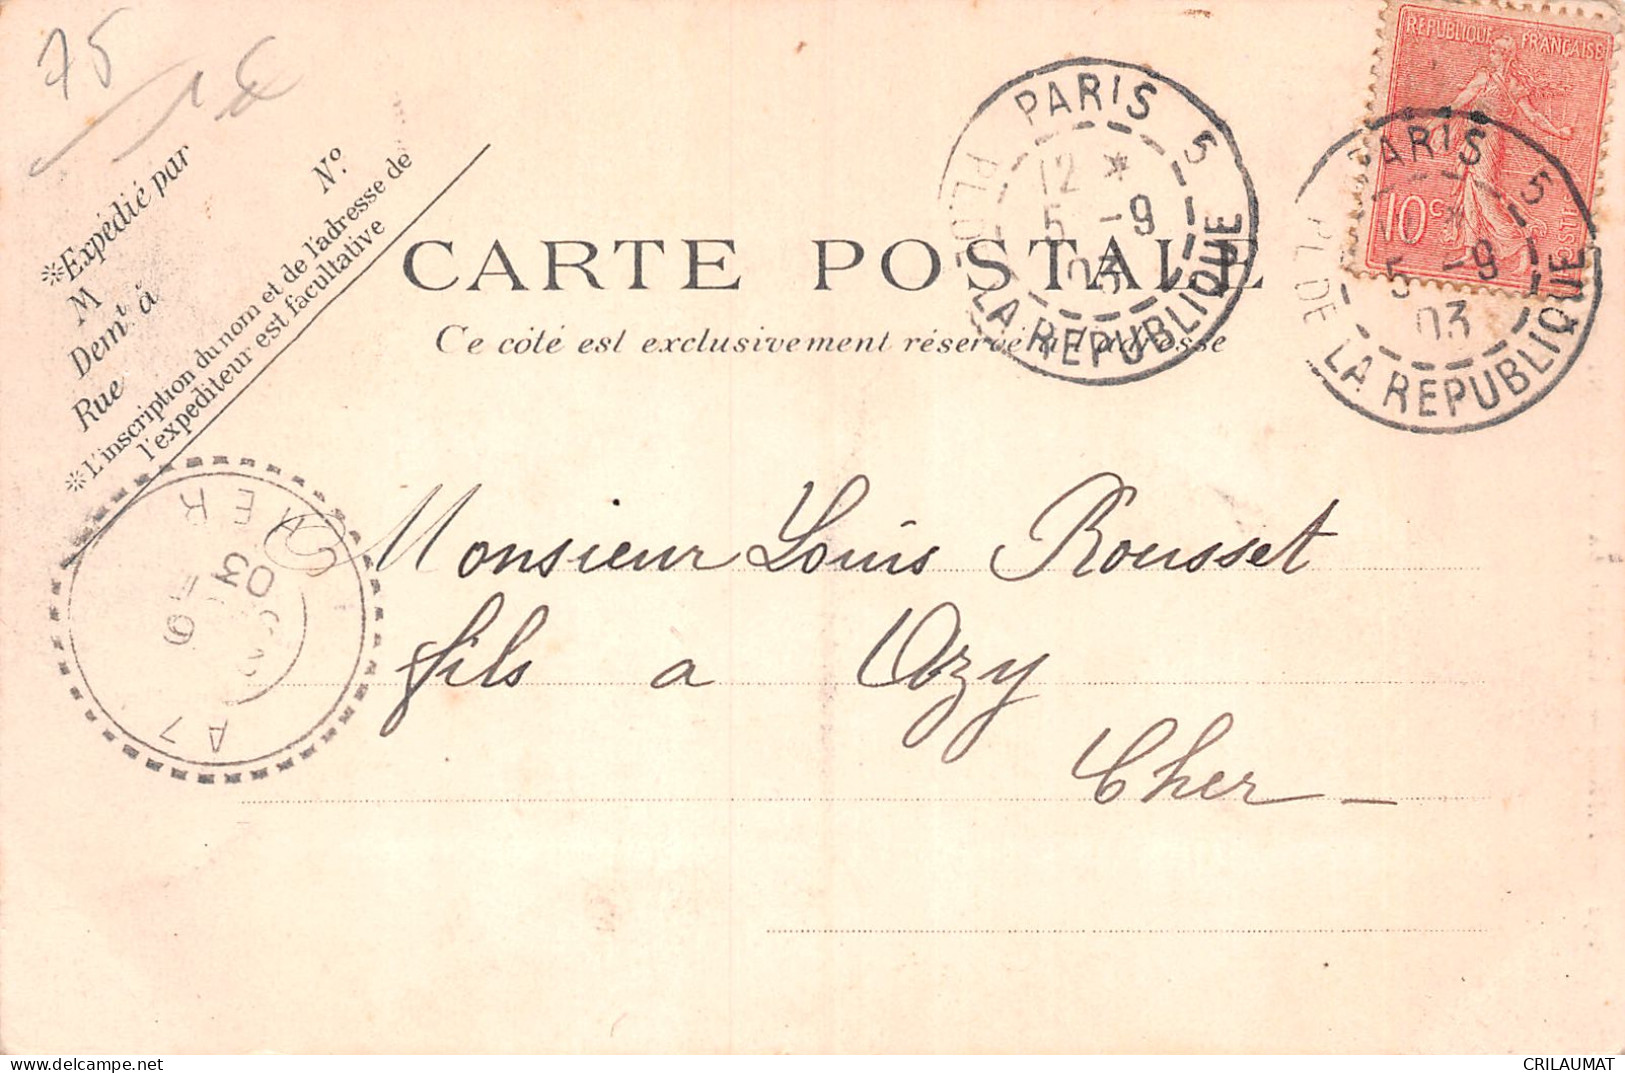 75
1€
※Expédié par
M
Demt à
Rue
No
※L'inscription du nom et de l'adresse de
l'expéditeur est facultative
CARTE POSTALE
Ce côté est exclusivement réservé à l'adresse
PARIS 5
PL. DE LA REPUBLIQUE
12 *
5 -9
03
REPUBLIQUE FRANÇAISE
10c
POSTES
PARIS 5
PL. DE LA REPUBLIQUE
5 -9
03
Monsieur Louis Rousset
fils a Azy
Cher
AZY
CHER
-9
03
CRILAUMAT